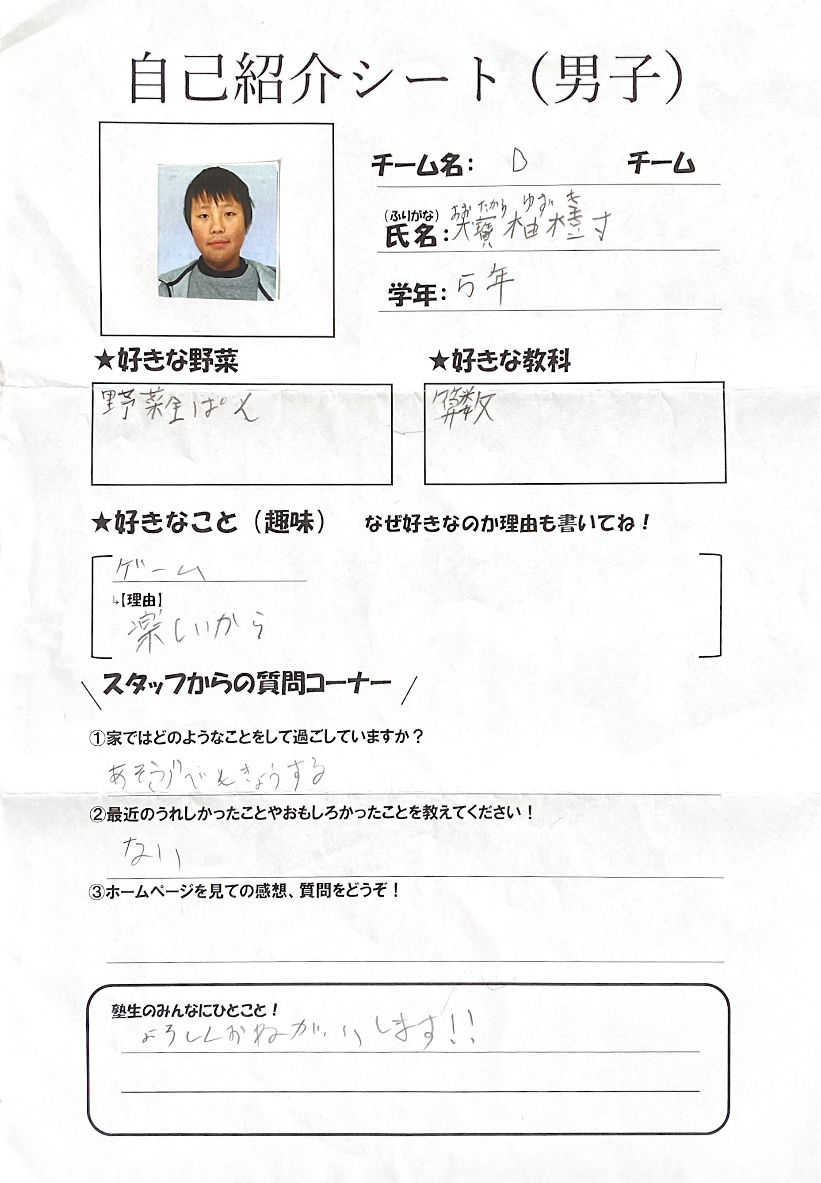 自己紹介シート（男子）
チーム名： D チーム
(ふりがな) おおたから ゆずき
氏名：大寶 柚樹
学年：5年
★好きな野菜 ★好きな教科
野菜全ぱん 算数
★好きなこと（趣味） なぜ好きなのか理由も書いてね！
ゲーム
↳【理由】
楽しいから
スタッフからの質問コーナー
①家ではどのようなことをして過ごしていますか？
あそぶべんきょうする
②最近のうれしかったことやおもしろかったことを教えてください！
ない
③ホームページを見ての感想、質問をどうぞ！
塾生のみんなにひとこと！
よろしくおねがいします!!